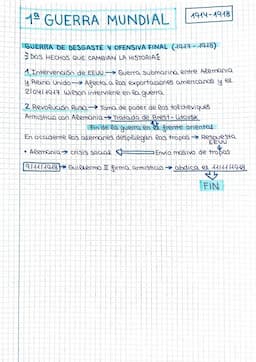 1ª GUERRA MUNDIAL
1914-1918
GUERRA DE DESGASTE Y OFENSIVA FINAL (1917 - 1918)
DOS HECHOS QUE CAMBIAN LA HISTORIA
1. Intervención de EEUU → Guerra submarina entre Alemania
y Reino Unido → Afecta a las exportaciones americanas y el
2/04/1917 Wilson interviene en la guerra.
2. Revolución Rusa → Toma de poder de los bolcheviques
Armisticio con Alemania → Tratado de Brest-Litovsk
Fin de la guerra en el frente oriental
En occidente los alemanes despliegan las tropas → Respuesta
EEUU
• Alemania → crisis social ← Envío masivo de tropas
9/11/1918 → Guillermo II firma armisticio → abdica el 11/11/1918
FIN